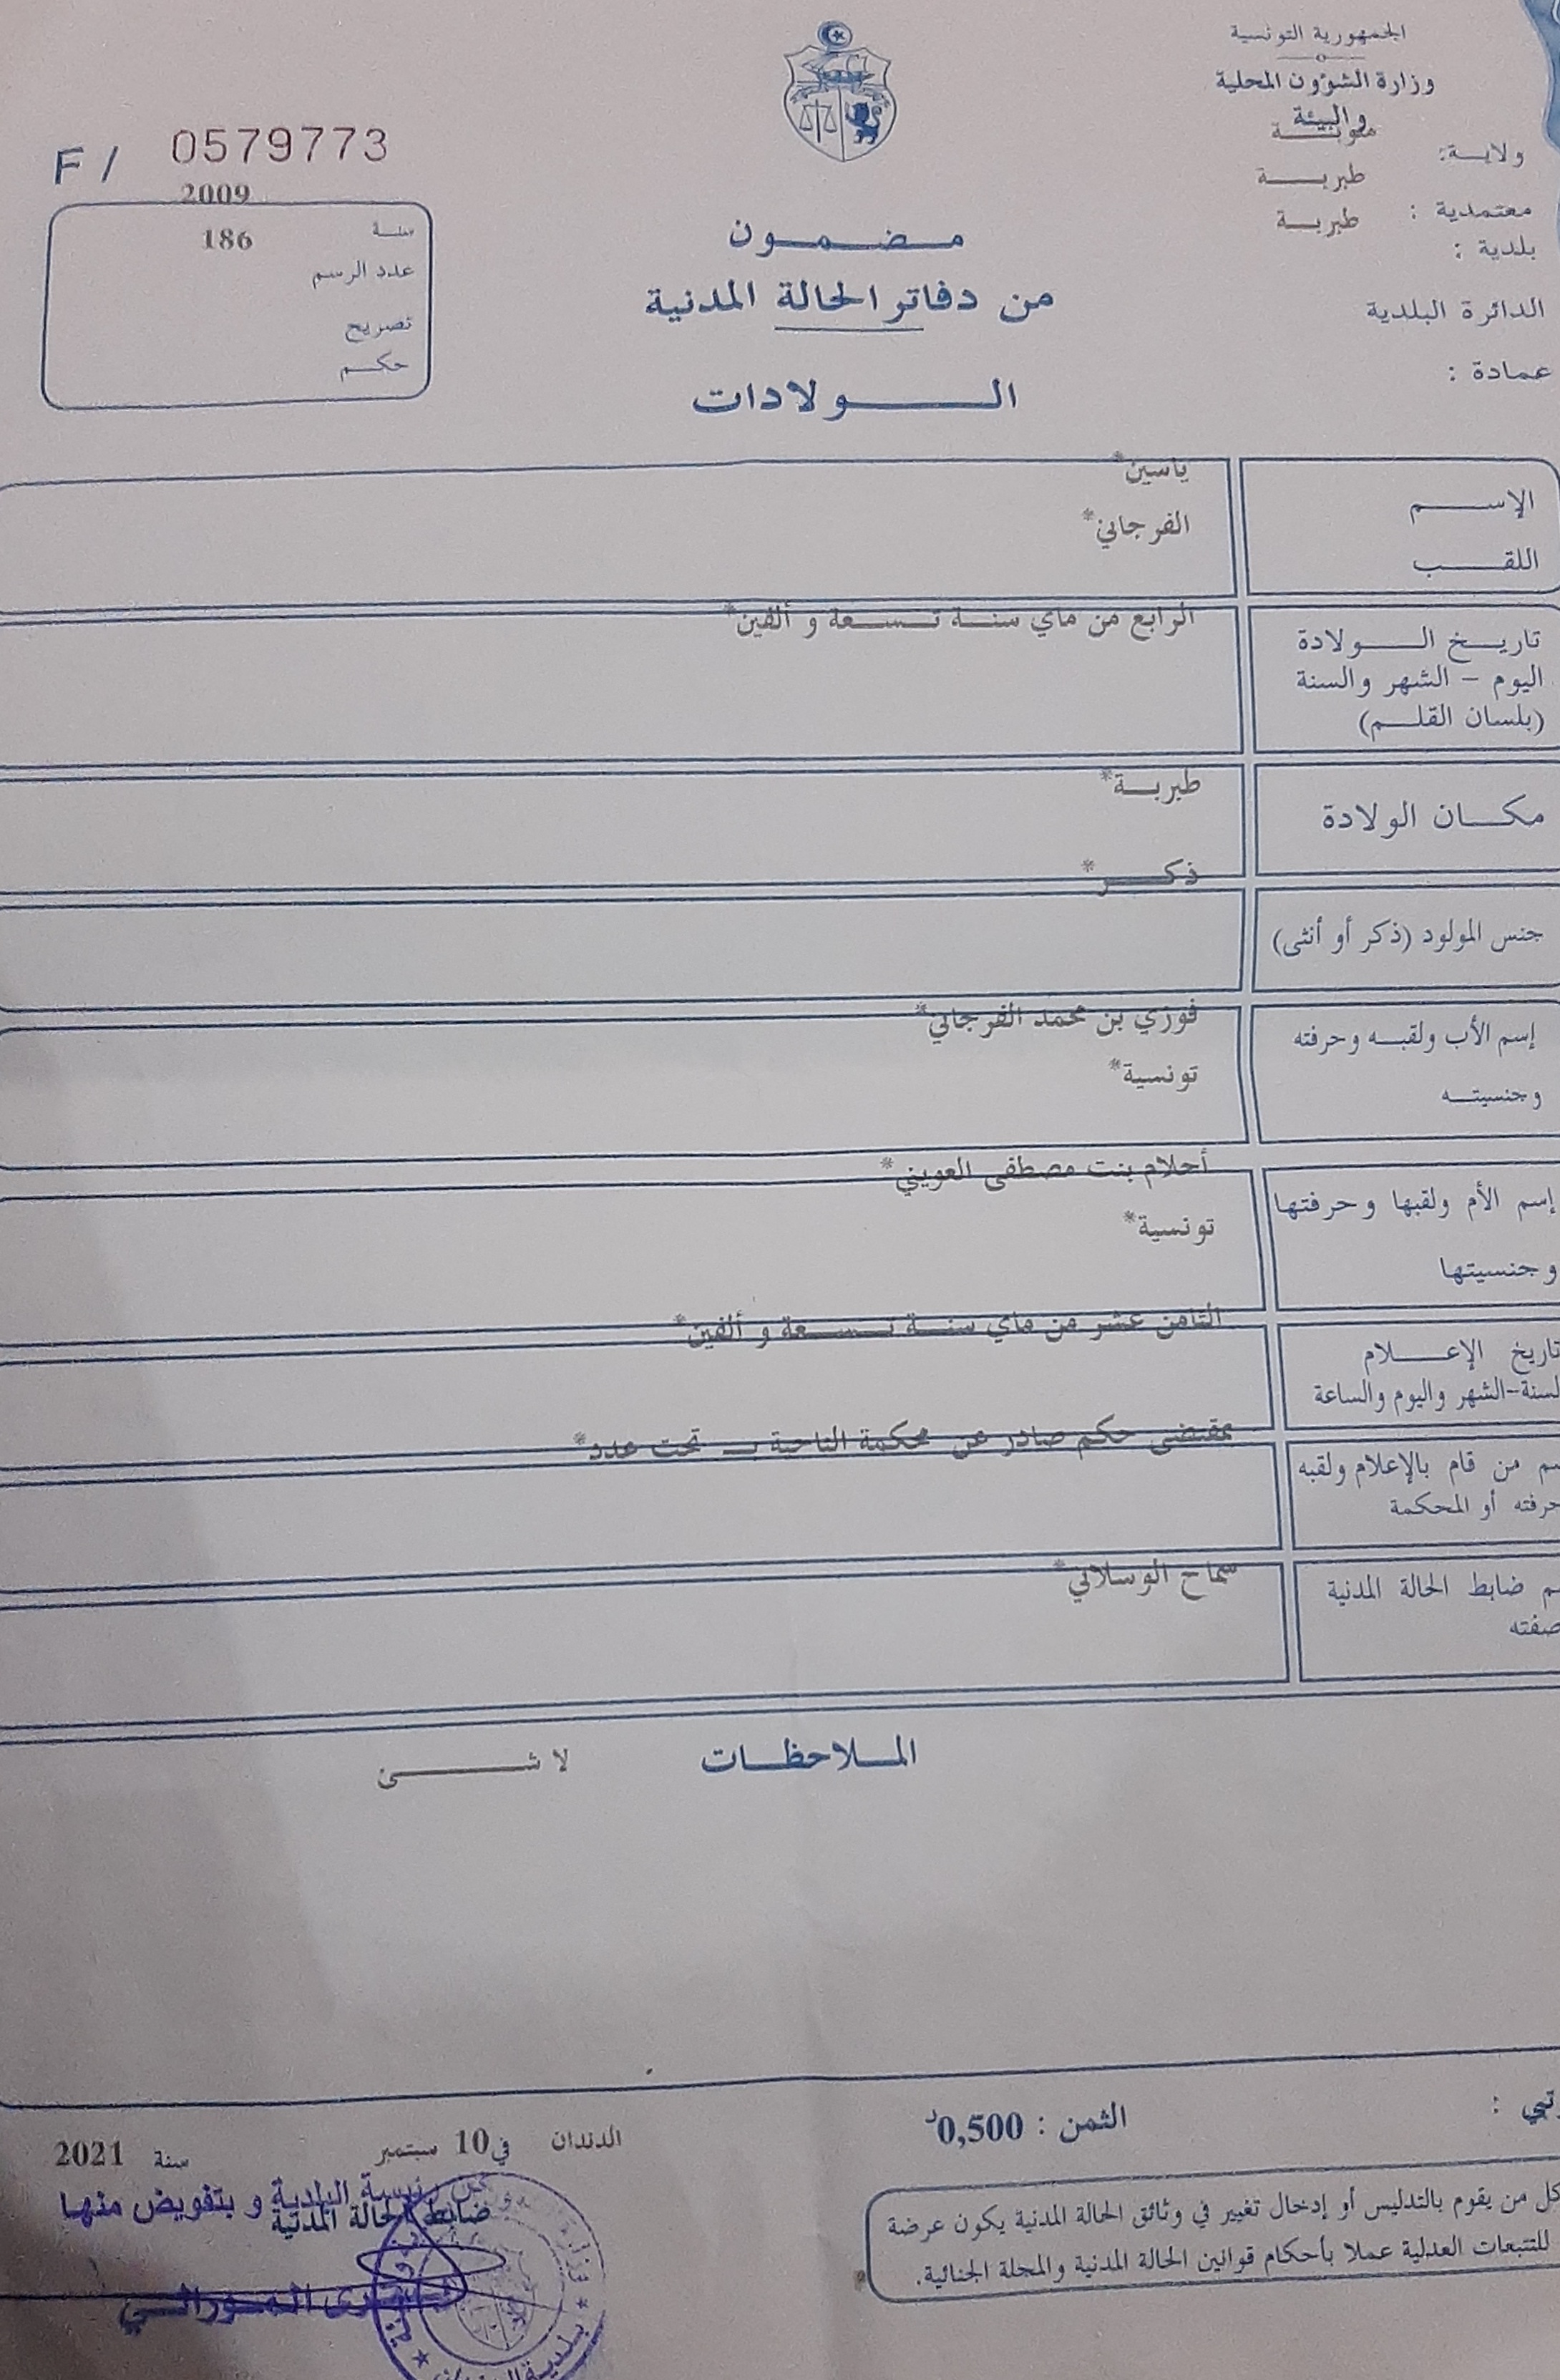 الجمهورية التونسية
وزارة الشؤون المحلية
والبيئة
ولاية: منوبة
معتمدية : طبربة
بلدية : طبربة
الدائرة البلدية
عمادة :
F / 0579773
سنة 2009
عدد الرسم 186
تصريح
حكم
مضمون
من دفاتر الحالة المدنية
الولادات
الإسم ياسين*
اللقب الفرجاني*
تاريخ الولادة الرابع من ماي سنة تسعة و ألفين*
اليوم - الشهر والسنة
(بلسان القلم)
مكان الولادة طبربة*
جنس المولود (ذكر أو أنثى) ذكر*
إسم الأب ولقبه وحرفته فوزي بن محمد الفرجاني*
وجنسيته تونسية*
إسم الأم ولقبها وحرفتها أحلام بنت مصطفى العويني*
وجنسيتها تونسية*
تاريخ الإعلام الثامن عشر من ماي سنة تسعة و ألفين*
لسنة-الشهر واليوم والساعة
سم من قام بالإعلام ولقبه بمقتضى حكم صادر عن محكمة الناحية بـ تحت عدد*
حرفته أو المحكمة
م ضابط الحالة المدنية سماح الوسلاتي*
صفته
الملاحظات لا شئ
الثمن : 0,500د
الدندان في 10 سبتمبر سنة 2021
عن رئيسة البلدية و بتفويض منها
ضابط الحالة المدنية
كل من يقوم بالتدليس أو إدخال تغيير في وثائق الحالة المدنية يكون عرضة
للتتبعات العدلية عملا بأحكام قوانين الحالة المدنية والمجلة الجنائية.